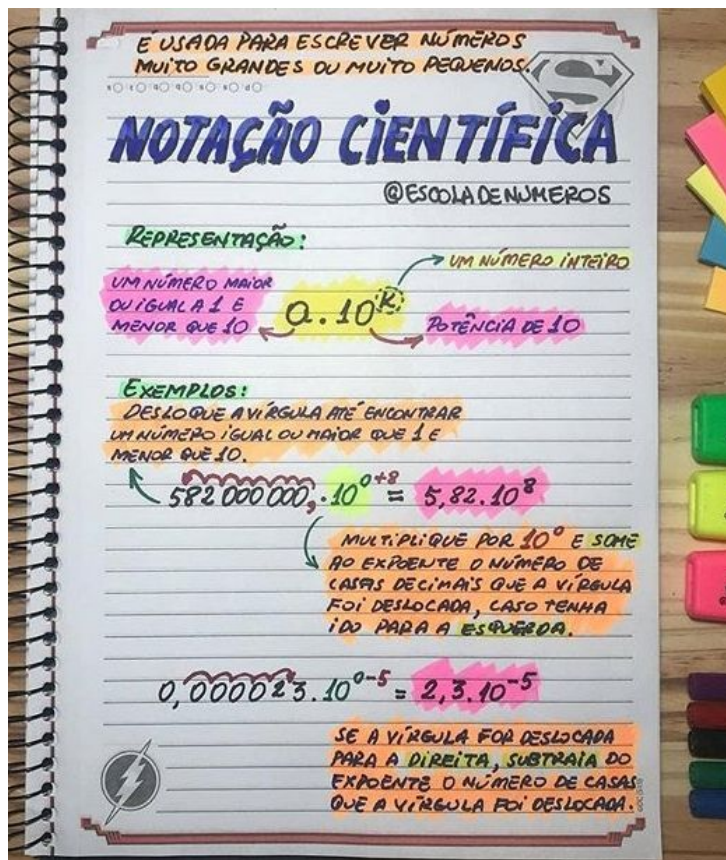 É USADA PARA ESCREVER NÚMEROS
MUITO GRANDES OU MUITO PEQUENOS.
NOTAÇÃO CIENTÍFICA
@ESCOLADENUMEROS
REPRESENTAÇÃO:
UM NÚMERO INTEIRO
UM NÚMERO MAIOR
OU IGUAL A 1 E
MENOR QUE 10
a.10ᵏ
POTÊNCIA DE 10
EXEMPLOS:
DESLOQUE A VÍRGULA ATÉ ENCONTRAR
UM NÚMERO IGUAL OU MAIOR QUE 1 E
MENOR QUE 10.
582 000 000,.10⁰⁺⁸ = 5,82.10⁸
MULTIPLIQUE POR 10⁰ E SOME
AO EXPOENTE O NÚMERO DE
CASAS DECIMAIS QUE A VÍRGULA
FOI DESLOCADA, CASO TENHA
IDO PARA A ESQUERDA.
0,000023.10⁰⁻⁵ = 2,3.10⁻⁵
SE A VÍRGULA FOR DESLOCADA
PARA A DIREITA, SUBTRAIA DO
EXPOENTE O NÚMERO DE CASAS
QUE A VÍRGULA FOI DESLOCADA.